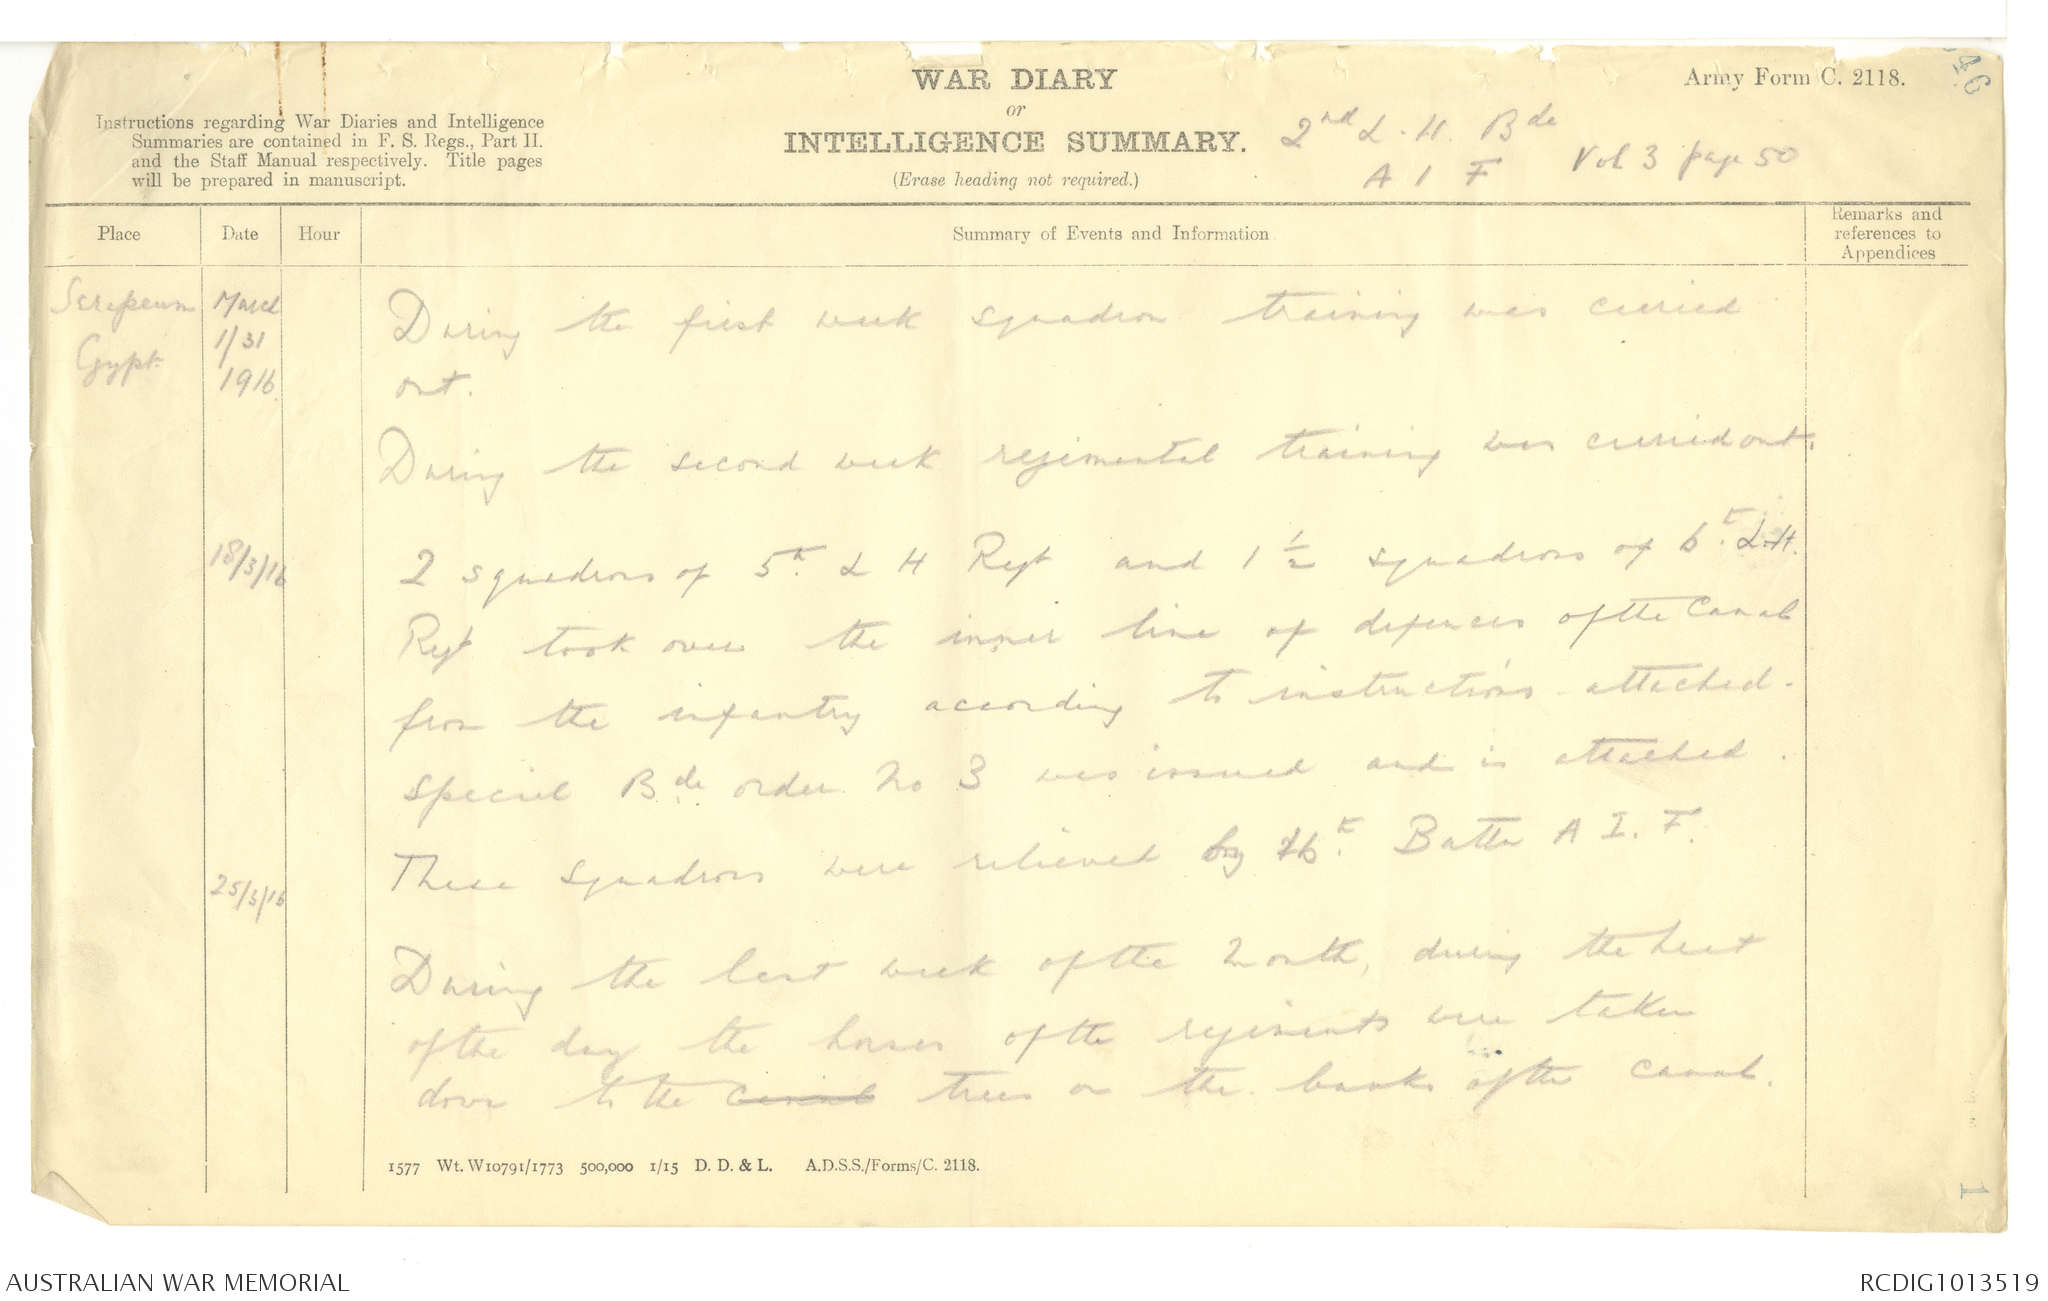 WAR DIARY
or
INTELLIGENCE SUMMARY.
(Erase heading not required.)
Army Form C. 2118.
46
Instructions regarding War Diaries and Intelligence
Summaries are contained in F. S. Regs., Part II.
and the Staff Manual respectively. Title pages
will be prepared in manuscript.
2nd L. H. Bde
A I F
Vol 3 page 50
Place
Date
Hour
Summary of Events and Information
Remarks and
references to
Appendices
Serapeum
Egypt
March
1/31
1916
During the first week squadron training was carried
out.
During the second week regimental training was carried out.
18/3/16
2 squadrons of 5th L H Regt and 1 1/2 squadrons of 6th L.H.
Regt took over the inner line of defences of the Canal
from the infantry according to instructions attached.
Special Bde order No 3 was issued and is attached.
25/3/16
These squadrons were relieved by Battn A I. F.
During the last week of the Month, during the heat
of the day the horses of the regiments were taken
down to the canal trees on the banks of the canal.
1577 Wt. W10791/1773 500,000 1/15 D. D. & L. A.D.S.S./Forms/C. 2118.
1
AUSTRALIAN WAR MEMORIAL
RCDIG1013519